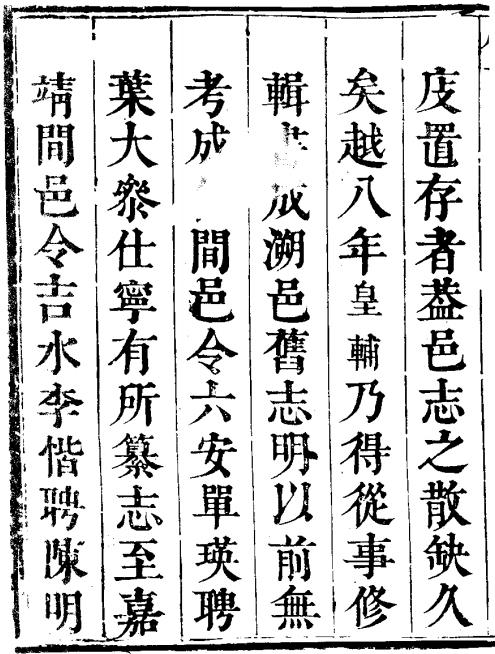 庋置存者葢邑志之散缺久
矣越八年皇輔乃得從事修
輯書成溯邑舊志明以前無
考成間邑令六安單瑛聘
葉大叅仕寧有所纂志至嘉
靖間邑令吉水李惂聘陳明